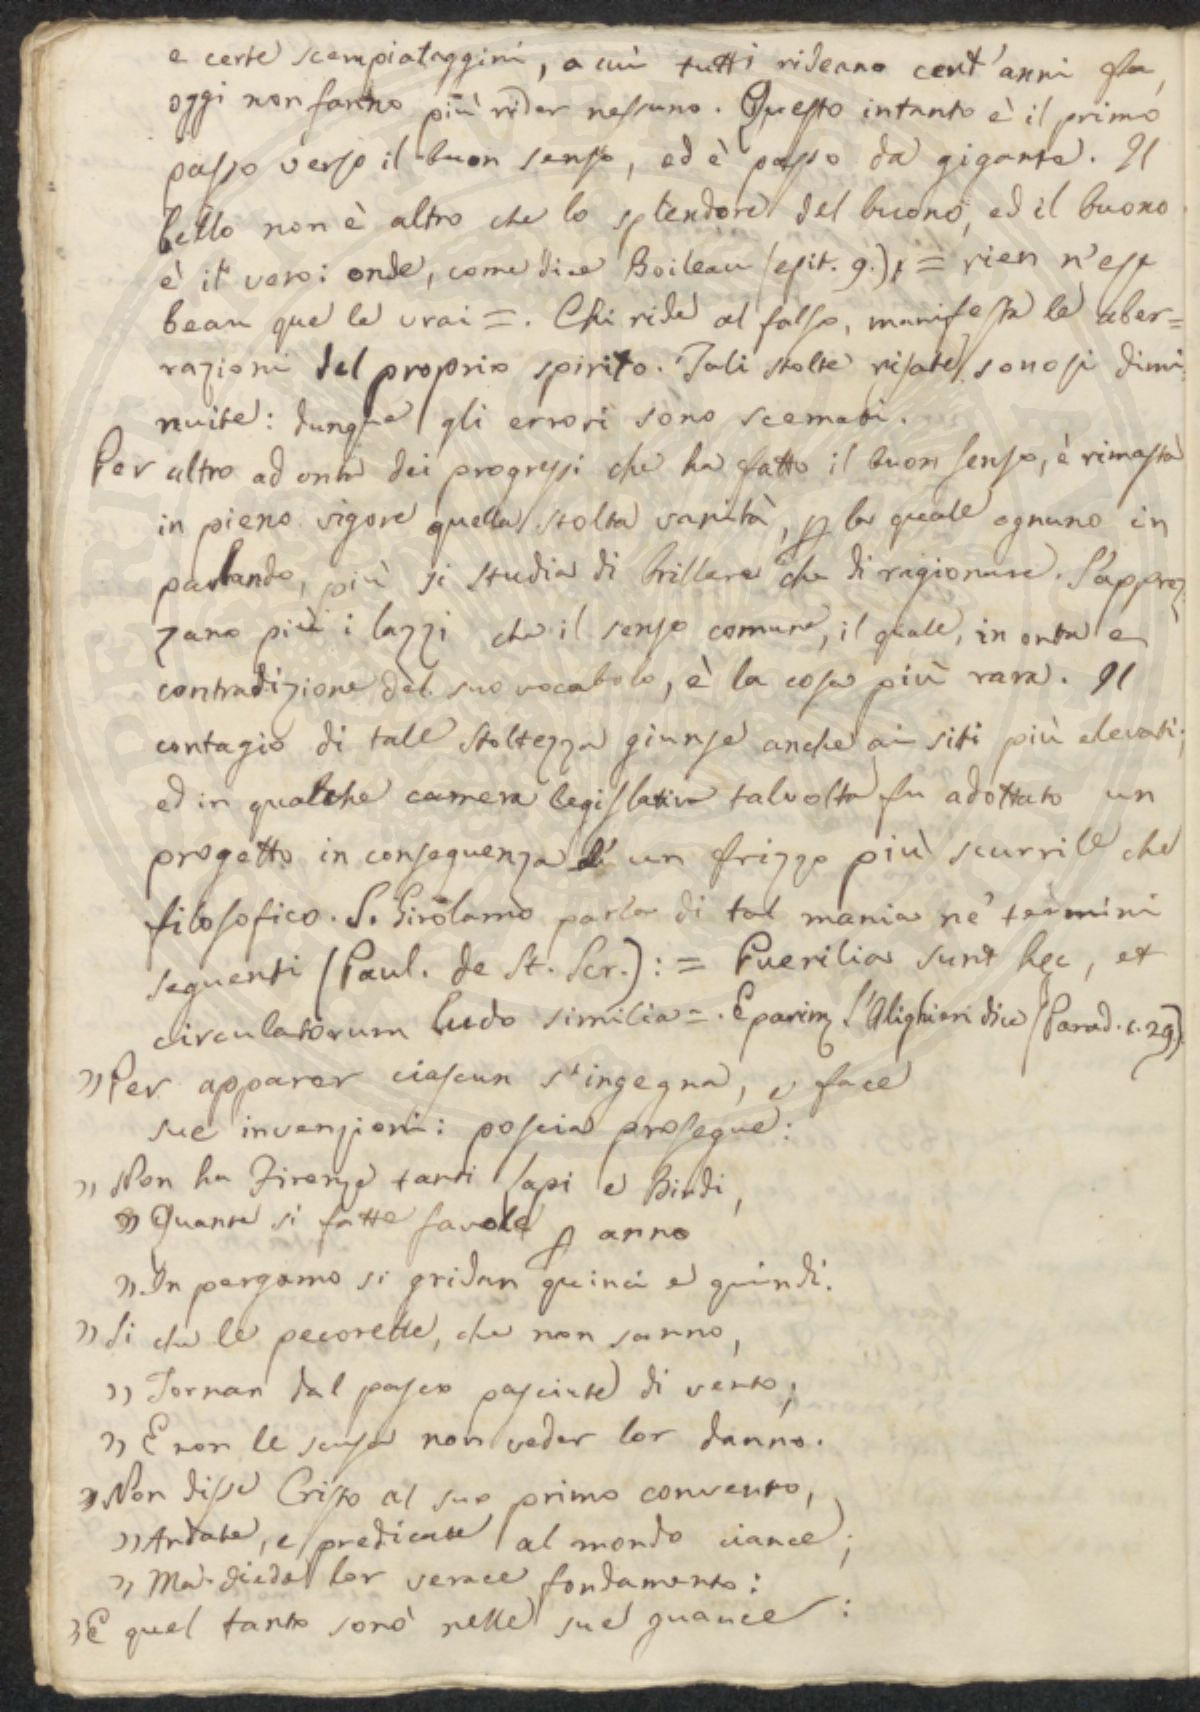 e certe scempiataggini, a cui tutti rideano cent'anni fa,
oggi non fanno più rider nessuno. Questo intanto è il primo
passo verso il buon senso, ed è passo da gigante. Il
bello non è altro che lo splendore del buono, ed il buono
è il vero: onde, come dice Boileau (epit. 9.), = rien n'est
beau que le vrai =. Chi ride al falso, manifesta le aber=
razioni del proprio spirito. Tali stolte risate sonosi dimi
nuite: dunque gli errori sono scemati.
Per altro ad onta dei progressi che ha fatto il buon senso, è rimasta
in pieno vigore quella stolta vanità, p la quale ognuno in
parlando, più si studia di brillare che di ragionare. S'apprez
zano più i lazzi che il senso comune, il quale, in onta e
contradizione del suo vocabolo, è la cosa più rara. Il
contagio di tale stoltezza giunse anche ai siti più elevati;
ed in qualche camera legislativa talvolta fu adottato un
progetto in conseguenza di un frizzo più scurrile che
filosofico. S. Girolamo parla di tal mania ne' termini
seguenti (Paul. de St. Scr.): = Puerilia sunt hęc, et
circulatorum ludo similia =. E parim. l'Alighieri dice (Parad. c. 29)
" Per apparer ciascun s'ingegna, e face
sue invenzioni: poscia prosegue:
" Non ha Firenze tanti Lapi e Bindi,
" Quante si fatte favole p anno
" In pergamo si gridan quinci e quindi.
" Si che le pecorelle, che non sanno,
" Tornan dal pasco pasciute di vento;
" E non le scusa non veder lor danno.
" Non disse Cristo al suo primo convento,
" Andate, e predicate al mondo ciance;
" Ma diede lor verace fondamento:
" E quel tanto sonò nelle sue guance: